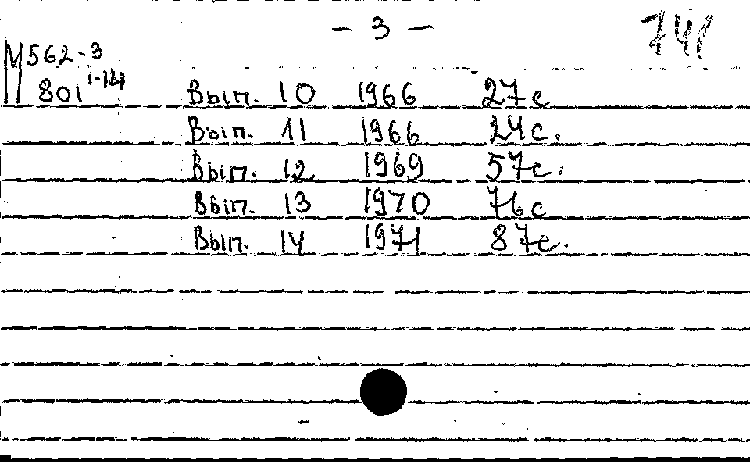 - 3 -
741
М562-3
801 1-14
Вып. 10 1966 27с
Вып. 11 1966 24с.
Вып. 12 1969 57с.
Вып. 13 1970 76с
Вып. 14 1971 87с.